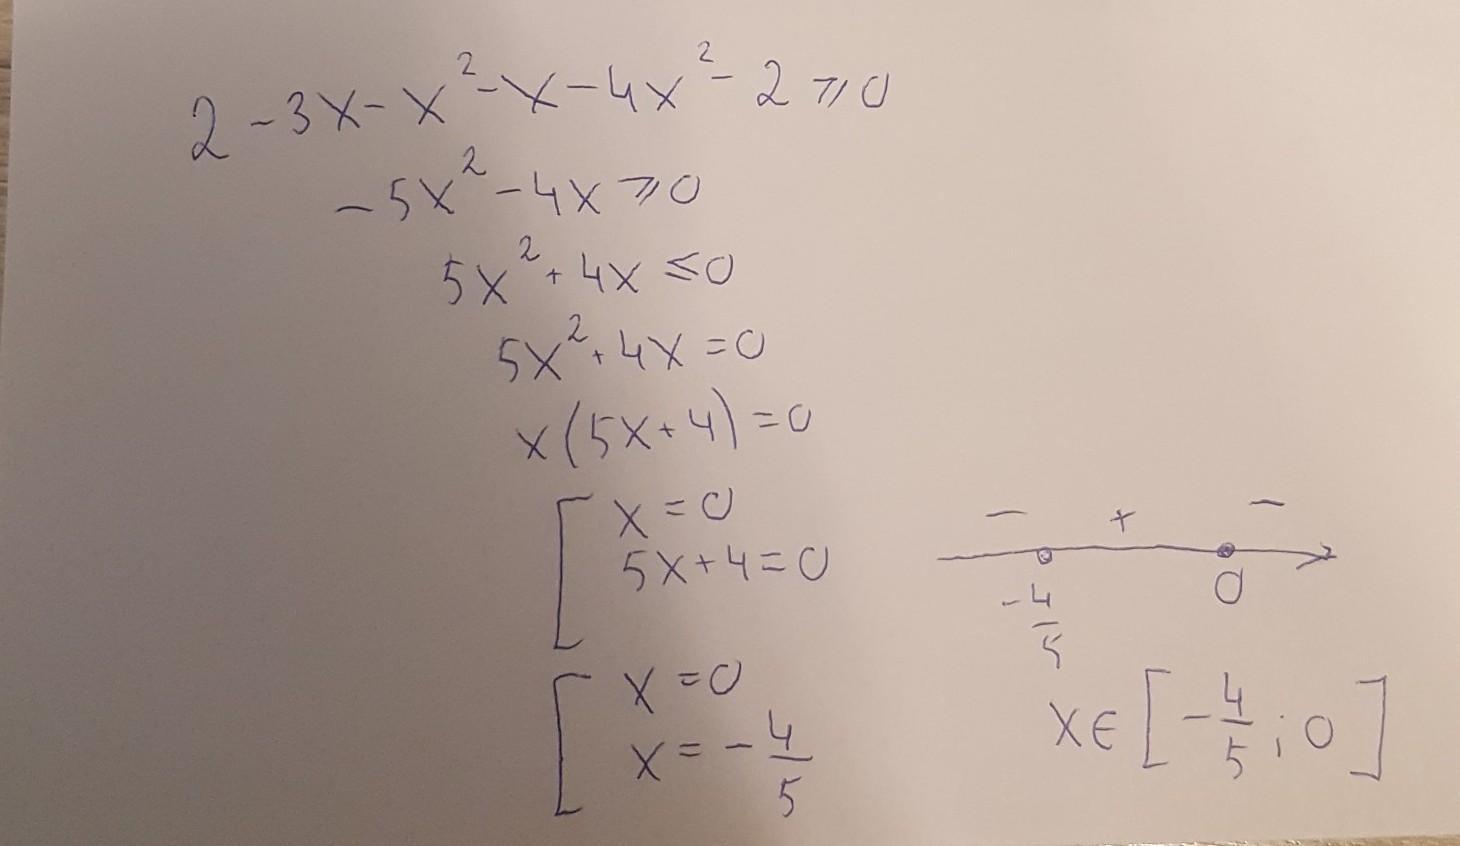 2 - 3x - x² - x - 4x² - 2 ⩾ 0
- 5x² - 4x ⩾ 0
5x² + 4x ≤ 0
5x² + 4x = 0
x(5x + 4) = 0
[ x = 0
5x + 4 = 0
[ x = 0
x = - 4/5
- + -
- 4/5 0
x ∈ [ - 4/5 ; 0 ]